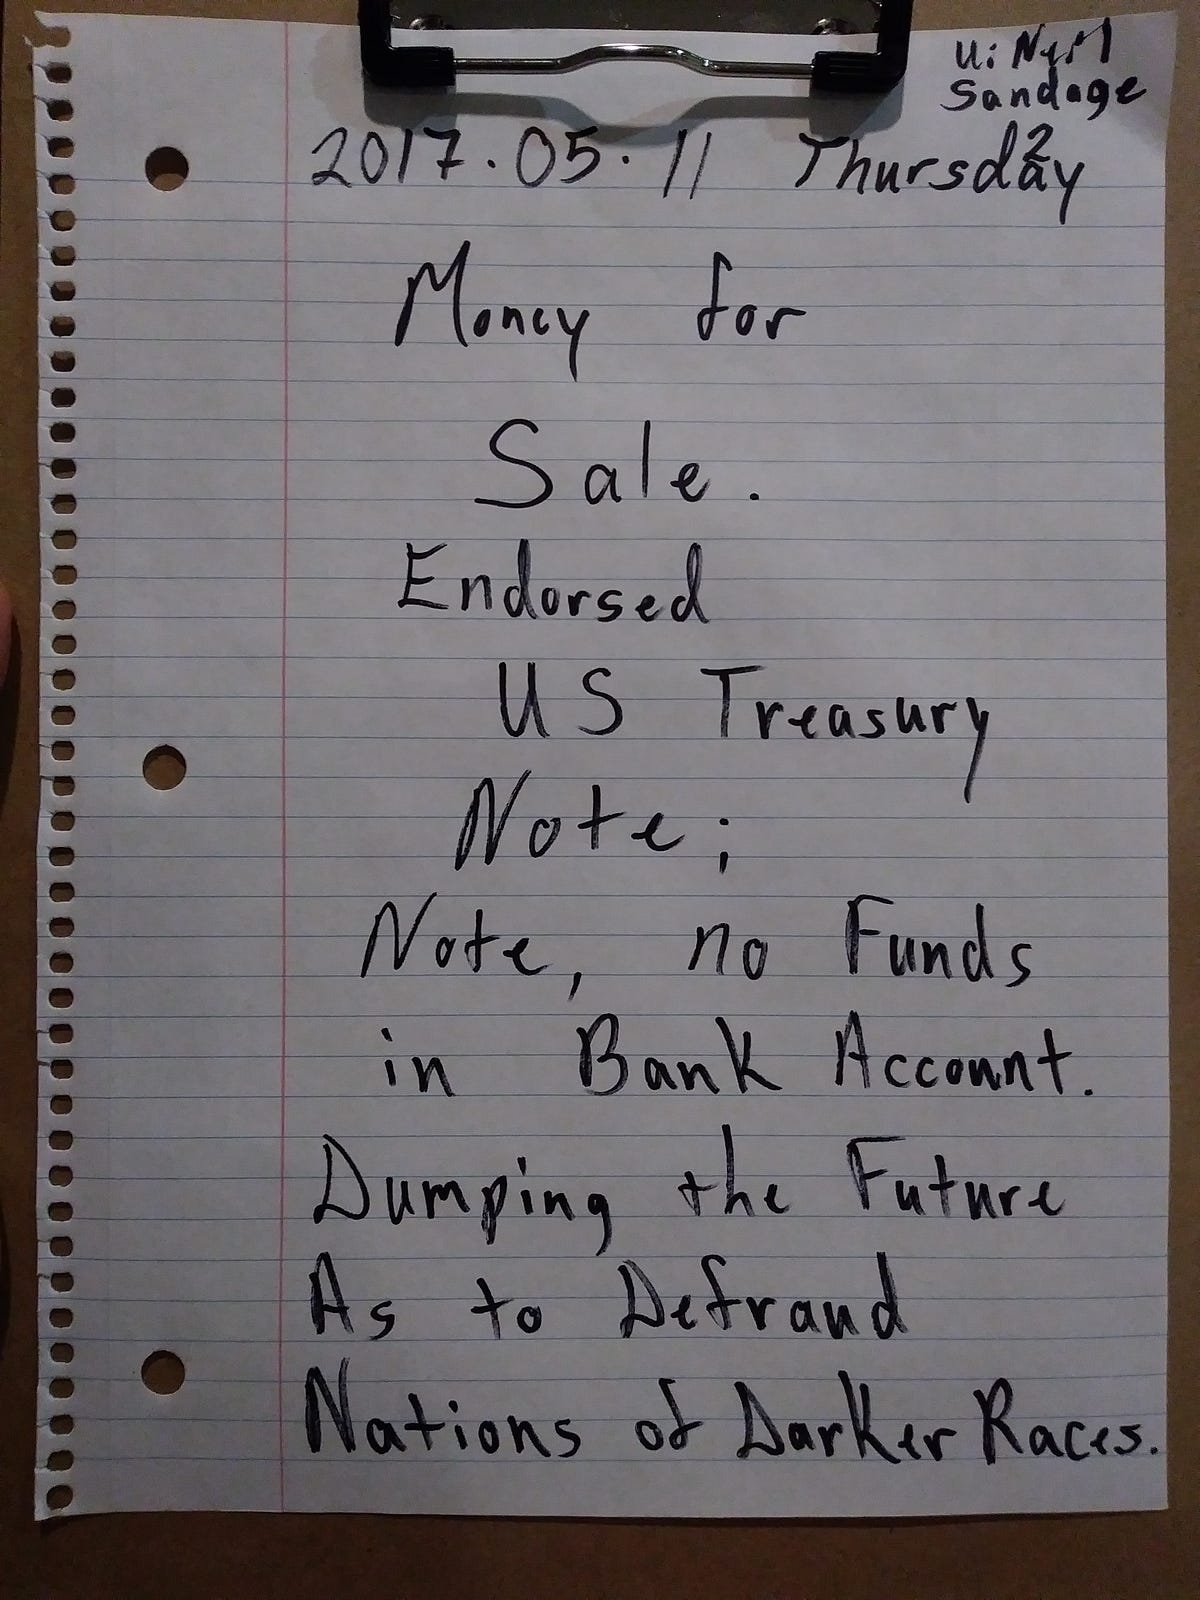 Sandage
2
2017.05.11 Thursday
Money for
Sale.
Endorsed
US Treasury
Note;
Note, no Funds
in Bank Account.
Dumping the Future
As to Defraud
Nations of Darker Races.